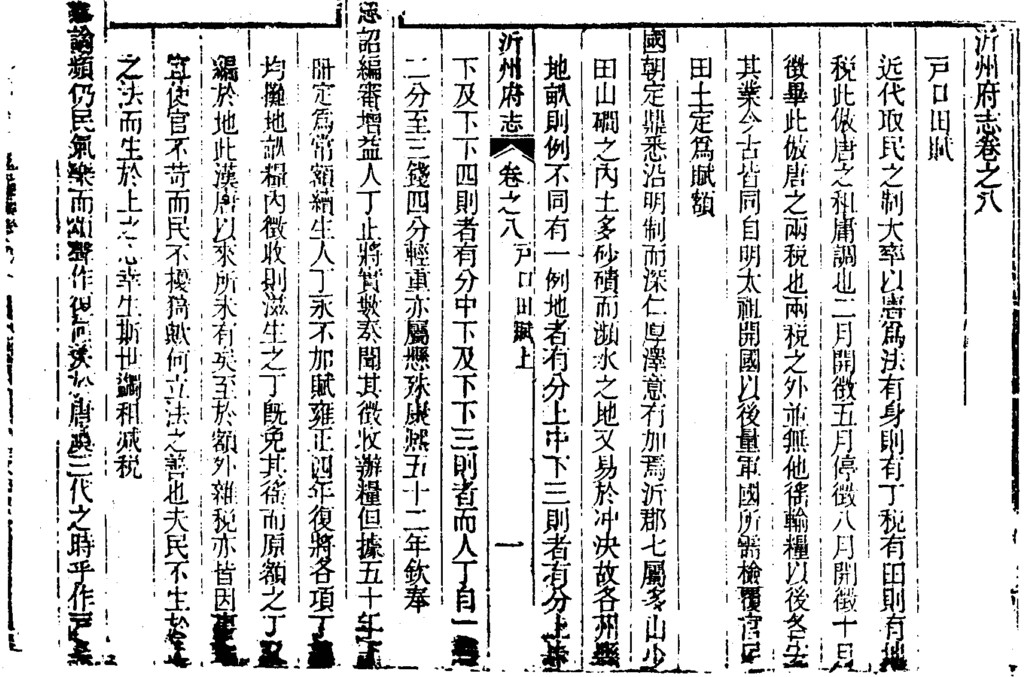 沂州府志卷之八
戸口田賦
近代取民之制大率以唐爲法有身則有丁税有田則有地
税此倣唐之租庸調也二月開徵五月停徵八月開徵十月
徵畢此倣唐之兩税也兩税之外並無他徭輸糧以後各安
其業今古皆同自明太祖開國以後量軍國所需檢覆官民
田土定爲賦額
國朝定鼎悉沿明制而深仁厚澤意有加焉沂郡七屬多山少
田山磵之內土多砂磧而瀕水之地又易於冲決故各州縣
地畝則例不同有一例地者有分上中下三則者有分上
沂州府志 卷之八 戸口田賦上 一
下及下下四則者有分中下及下下三則者而人丁自一
二分至三錢四分輕重亦屬懸殊康熙五十二年欽奉
恩詔編審增益人丁止將實數奏聞其徵收辦糧但據五十年丁
册定爲常額續生人丁永不加賦雍正四年復將各項丁
均攤地畝糧內徵收則滋生之丁旣免其徭而原額之丁又
於地此漢唐以來所未有矣至於額外雜税亦皆因
宜使官不苛而民不擾猗歟何立法之善也夫民不生於
之法而生於上之心幸生斯世蠲租減税
恩諭頻仍民氣樂而頌聲作復何於唐虞三代之時乎作戸